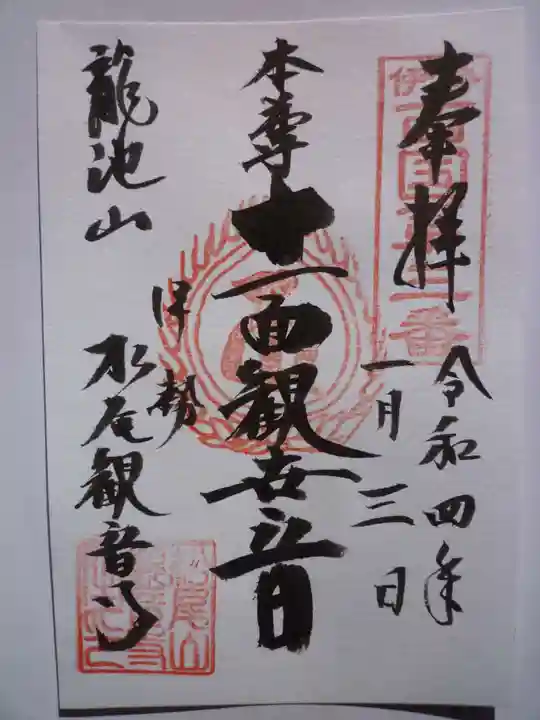 奉拝
令和四年
一月三日
本尊
十一面観世音
伊勢
龍池山
松尾観音寺